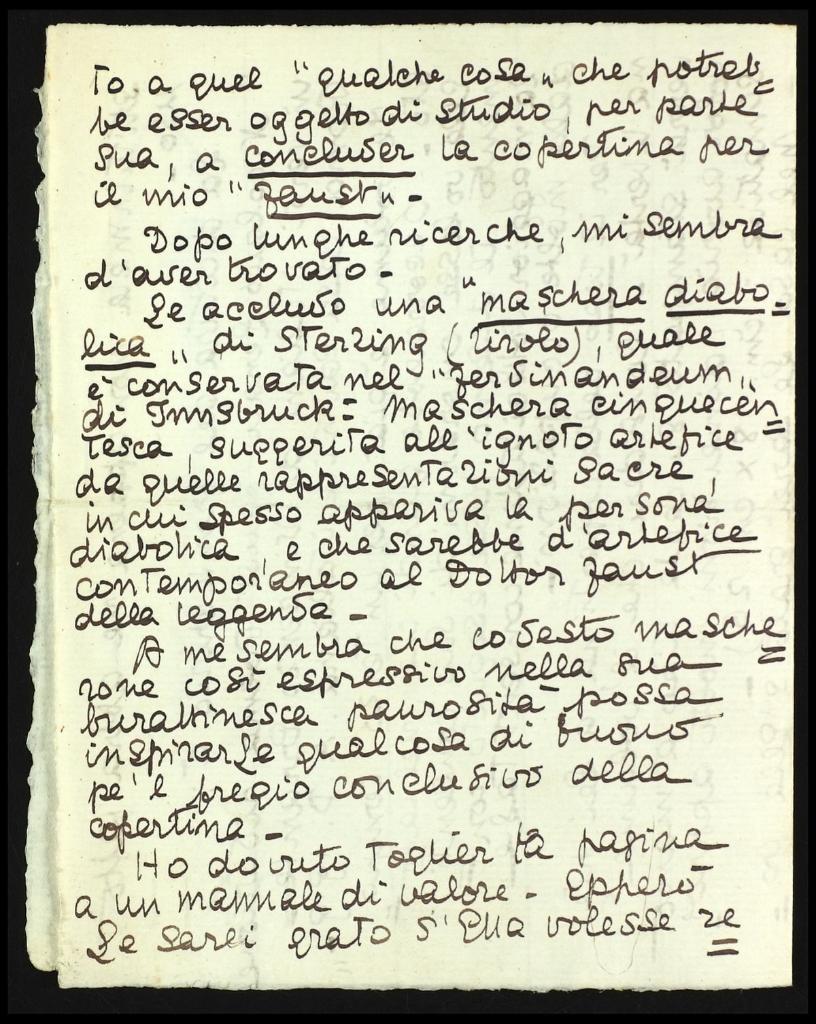 to a quel "qualche cosa" che potreb=
be esser oggetto di studio, per parte
sua, a concluder la copertina per
il mio "Faust" -
Dopo lunghe ricerche, mi sembra
d'aver trovato -
Le accludo una "maschera diabo=
lica" di Sterzing (Tirolo), quale
è conservata nel "Ferdinandeum"
di Innsbruck: maschera cinquecen=
tesca, suggerita all'ignoto artefice
da quelle rappresentazioni sacre,
in cui spesso appariva la persona
diabolica, e che sarebbe d'artefice
contemporaneo al Dottor Faust
della leggenda -
A me sembra che codesto masche=
rone così espressivo nella sua
burattinesca paurosità possa
inspirarLe qualcosa di buono
pe'l fregio conclusivo della
copertina -
Ho dovuto toglier la pagina
a un manuale di valore - Epperò
Le sarei grato s'Ella volesse re=